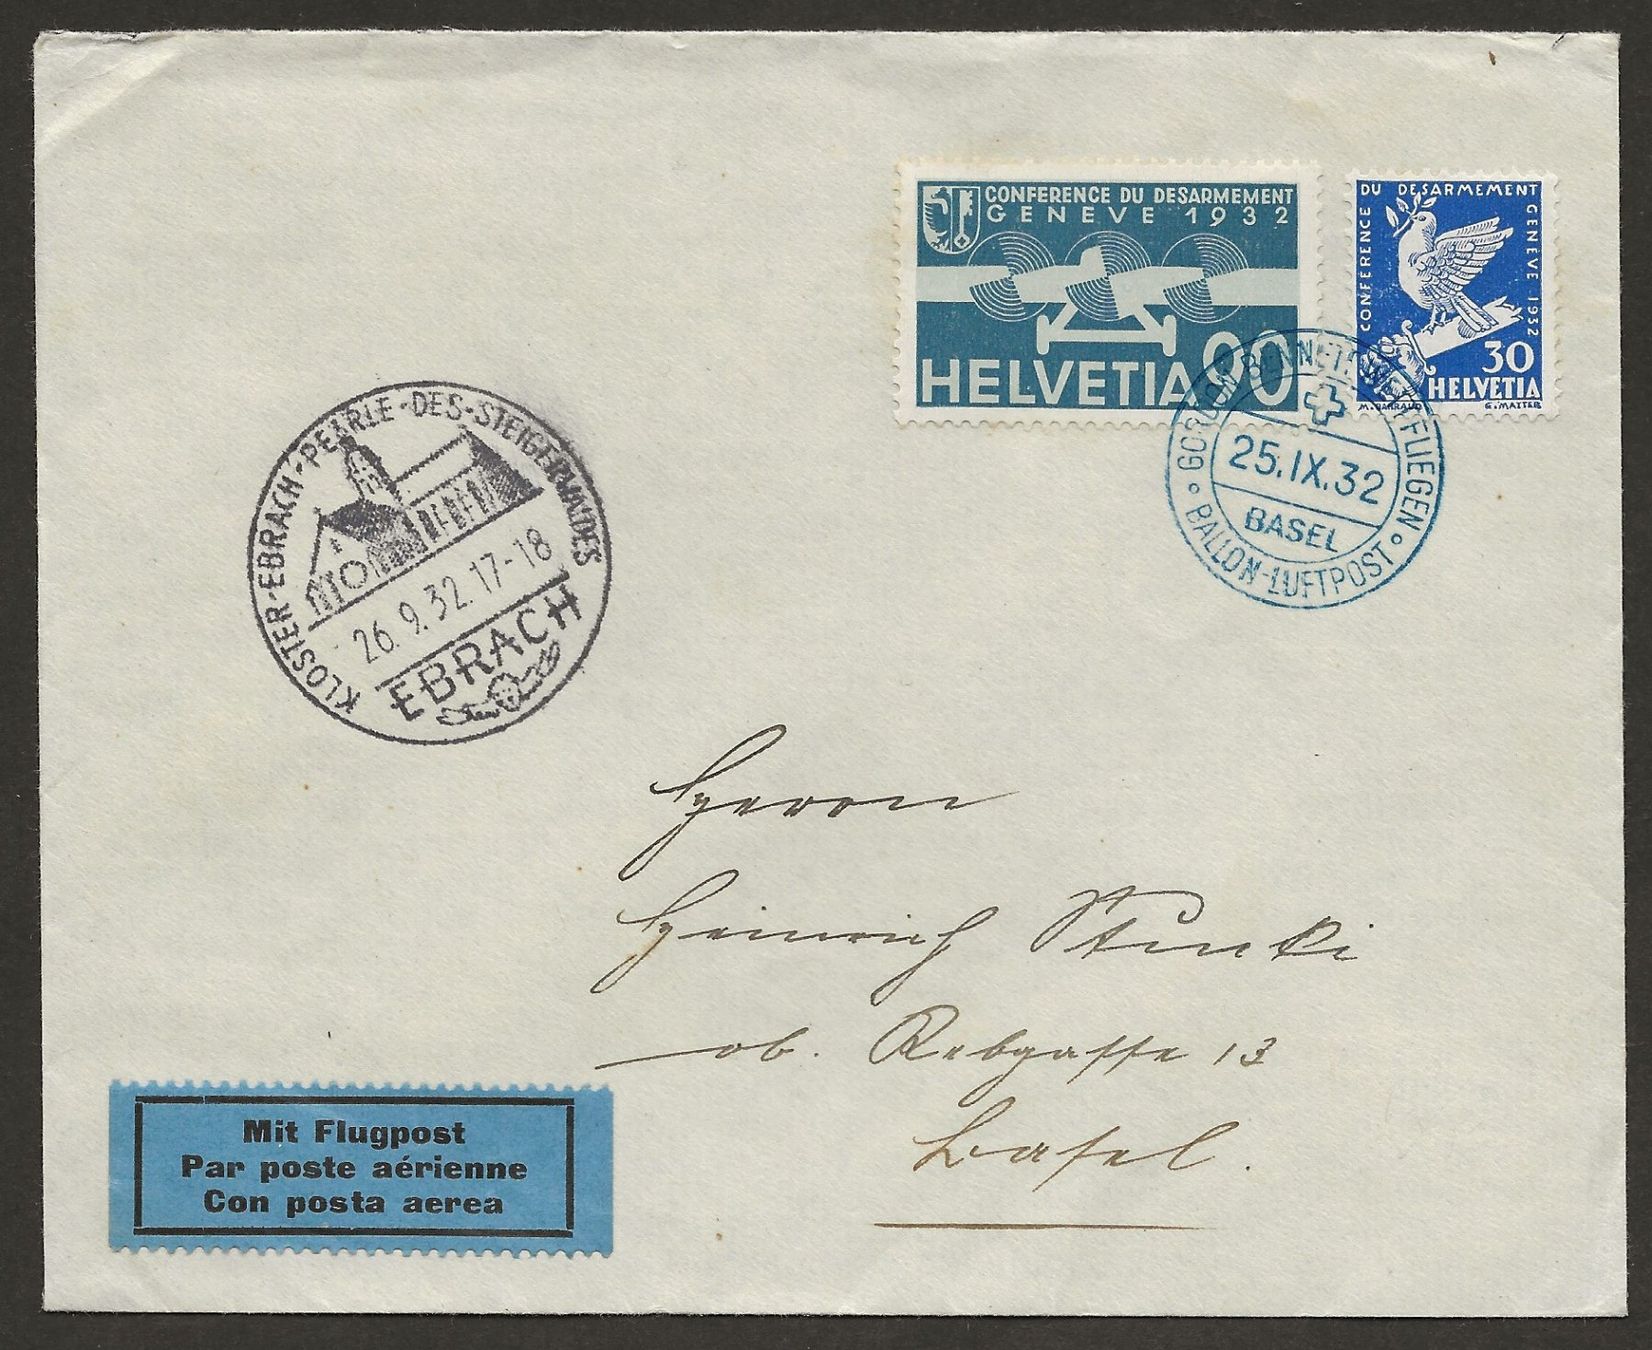 CONFERENCE DU DESARMEMENT
GENEVE 1932
HELVETIA 90
CONFERENCE DU DESARMEMENT GENEVE 1932
30
HELVETIA
M. BARRAUD
GORDON BENNET-WETTFLIEGEN
25.IX.32
BASEL
BALLON-LUFTPOST
KLOSTER-EBRACH-PEARLE-DES-STEIGERWALDES
26.9.32.17-18
EBRACH
Herrn
Heinrich Stunki
ob. Rebgasse 13
Basel.
Mit Flugpost
Par poste aérienne
Con posta aerea